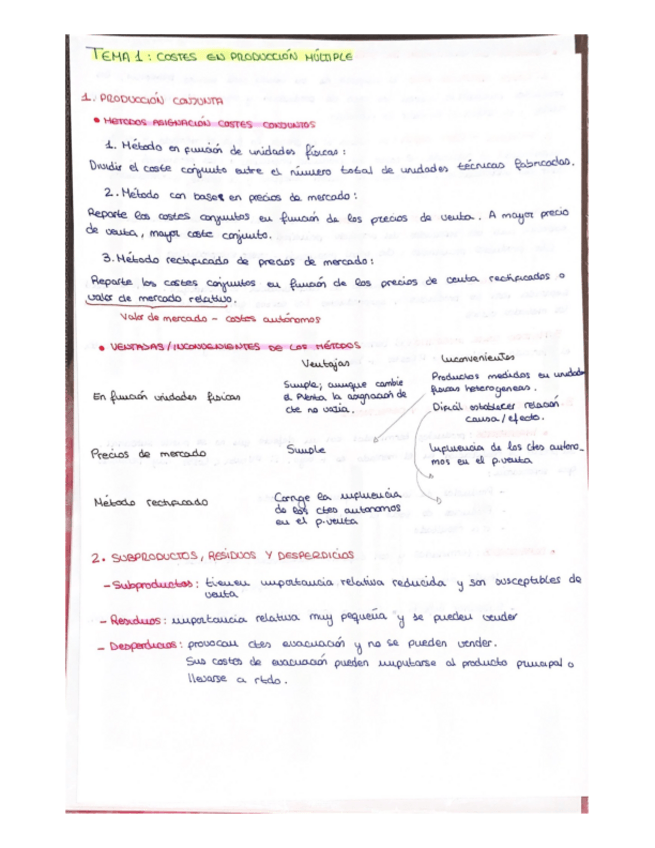 TEMA 1: COSTES EN PRODUCCIÓN MÚLTIPLE
1. PRODUCCIÓN CONJUNTA
• MÉTODOS ASIGNACIÓN COSTES CONJUNTOS
1. Método en función de unidades físicas:
Dividir el coste conjunto entre el número total de unidades técnicas fabricadas.
2. Método con bases en precios de mercado:
Reparte los costes conjuntos en función de los precios de venta. A mayor precio
de venta, mayor coste conjunto.
3. Método rectificado de precios de mercado:
Reparte los costes conjuntos en función de los precios de venta rectificados o
valor de mercado relativo.
Valor de mercado - costes autónomos
• VENTAJAS/INCONVENIENTES DE LOS MÉTODOS
Ventajas Inconvenientes
En función unidades físicas
Simple, aunque cambie
el Pventa la asignación de
cte no varía.
Productos medidos en unidades
físicas heterogéneas.
Difícil establecer relación
causa/efecto.
Precios de mercado
Simple
Influencia de los ctes autóno-
mos en el p.venta
Método rectificado
Corrige la influencia
de los ctes autónomos
en el p.venta
2. SUBPRODUCTOS, RESIDUOS Y DESPERDICIOS
- Subproductos: tienen importancia relativa reducida y son susceptibles de
venta
- Residuos: importancia relativa muy pequeña y se pueden vender
- Desperdicios: provocan ctes evacuación y no se pueden vender.
Sus costes de evacuación pueden imputarse al producto principal o
llevarse a rtdo.